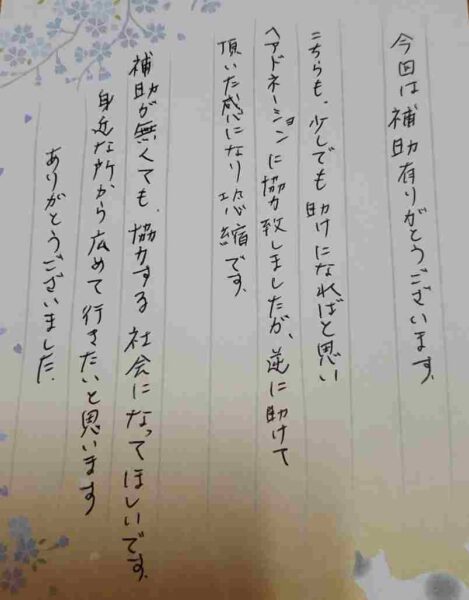 今回は補助有りがとうございます。
こちらも、少しでも助けになればと思い
ヘアドネーションに協力致しましたが、逆に助けて
頂いた感になり恐縮です。
補助が無くても、協力する社会になってほしいです。
身近な所から広めて行きたいと思います
ありがとうございました。